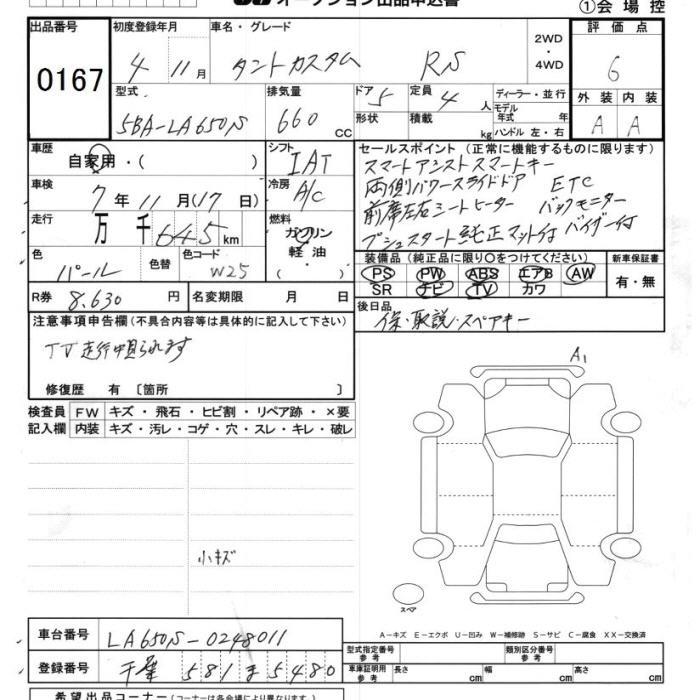 オークション出品申込書
①会場控
出品番号
0167
初度登録年月
4 11月
車名・グレード
タントカスタム RS
2WD
・
4WD
評価点
6
外装 内装
A A
型式
5BA-LA650S
排気量
660 CC
ドア 5
形状
定員 4 人
積載 kg
ディーラー・並行
モデル年式 年
ハンドル 左・右
車歴
自家用・( )
シフト
IAT
車検
7年11月(17日)
冷房
A/C
走行
万千645km
燃料
ガソリン
軽油
色
パール
色替
色コード
W25
R券 8,630円
名変期限 月 日
セールスポイント(正常に機能するものに限ります)
スマートアシスト スマートキー
両側パワースライドドア ETC
前席左右シートヒーター バックモニター
プシュスタート 純正マット付 バイザー付
装備品(純正品に限り○をつけてください)
PS PW ABS エアB AW
SR ナビ TV カワ
新車保証書
有・無
後日品
保・取説・スペアキー
注意事項申告欄(不具合内容等は具体的に記入して下さい)
TV走行中見られます
修復歴 有 〔箇所 〕
検査員記入欄
FW キズ・飛石・ヒビ割・リペア跡・×要
内装 キズ・汚レ・コゲ・穴・スレ・キレ・破レ
小キズ
A1
スペア
A-キズ E-エクボ U-凹み W-補修跡 S-サビ C-腐食 XX-交換済
車台番号
LA650S-0248011
登録番号
千葉 581 ま 5480
型式指定番号 参考
類別区分番号 参考
車庫証明用 参考
長さ cm 幅 cm 高さ cm
希望出品コーナー(コーナーは各会場により異なります)